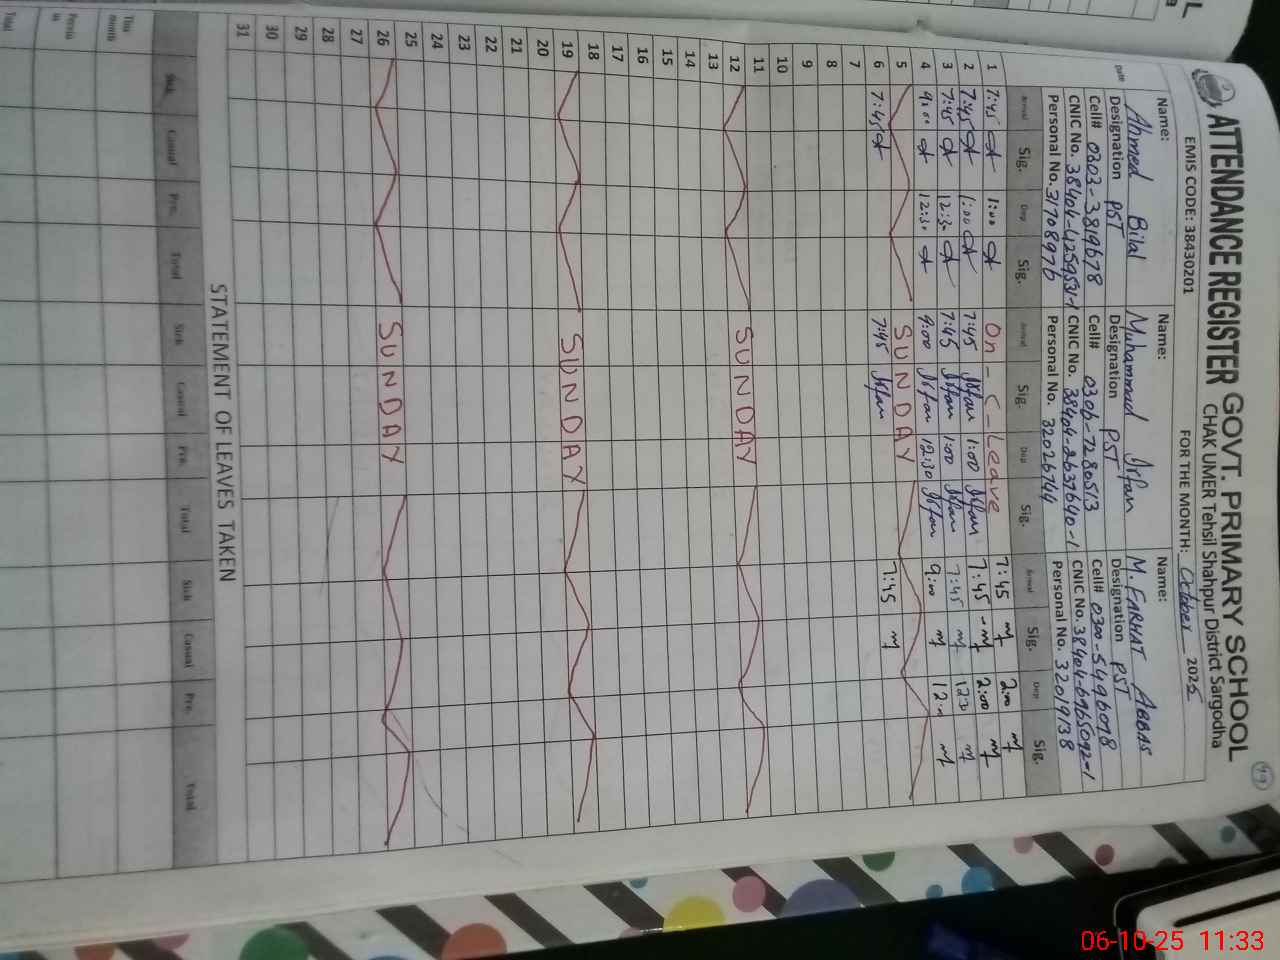 49
ATTENDANCE REGISTER GOVT. PRIMARY SCHOOL
CHAK UMER Tehsil Shahpur District Sargodha
EMIS CODE: 38430201 FOR THE MONTH: October 2025
Name: Name: Name:
Ahmed Bilal Muhammad Irfan M. FARHAT ABBAS
Designation PST Designation PST Designation PST
Cell# 0303-3819678 Cell# 0306-7280513 Cell# 0300-5496078
CNIC No. 38404-4259531-1 CNIC No. 38404-2637640-1 CNIC No. 38404-6965092-1
Personal No. 31708976 Personal No. 32026744 Personal No. 32019138
Date Arrival Sig. Dep Sig. Arrival Sig. Dep Sig. Arrival Sig. Dep Sig.
1 7:45 1:00 On - C - Leave 7:45 2:00
2 7:45 1:00 7:45 Irfan 1:00 Irfan 7:45 2:00
3 7:45 12:30 7:45 Irfan 1:00 Irfan 7:45
4 9:00 12:30 9:00 Irfan 12:30 Irfan 9:00
5 SUNDAY
6 7:45 7:45 Irfan 7:45
7
8
9
10
11
12 SUNDAY
13
14
15
16
17
18
19 SUNDAY
20
21
22
23
24
25
26 SUNDAY
27
28
29
30
31
STATEMENT OF LEAVES TAKEN
Sick Casual Pre. Total Sick Casual Pre. Total Sick Casual Pre. Total
This month
Total
06-10-25 11:33